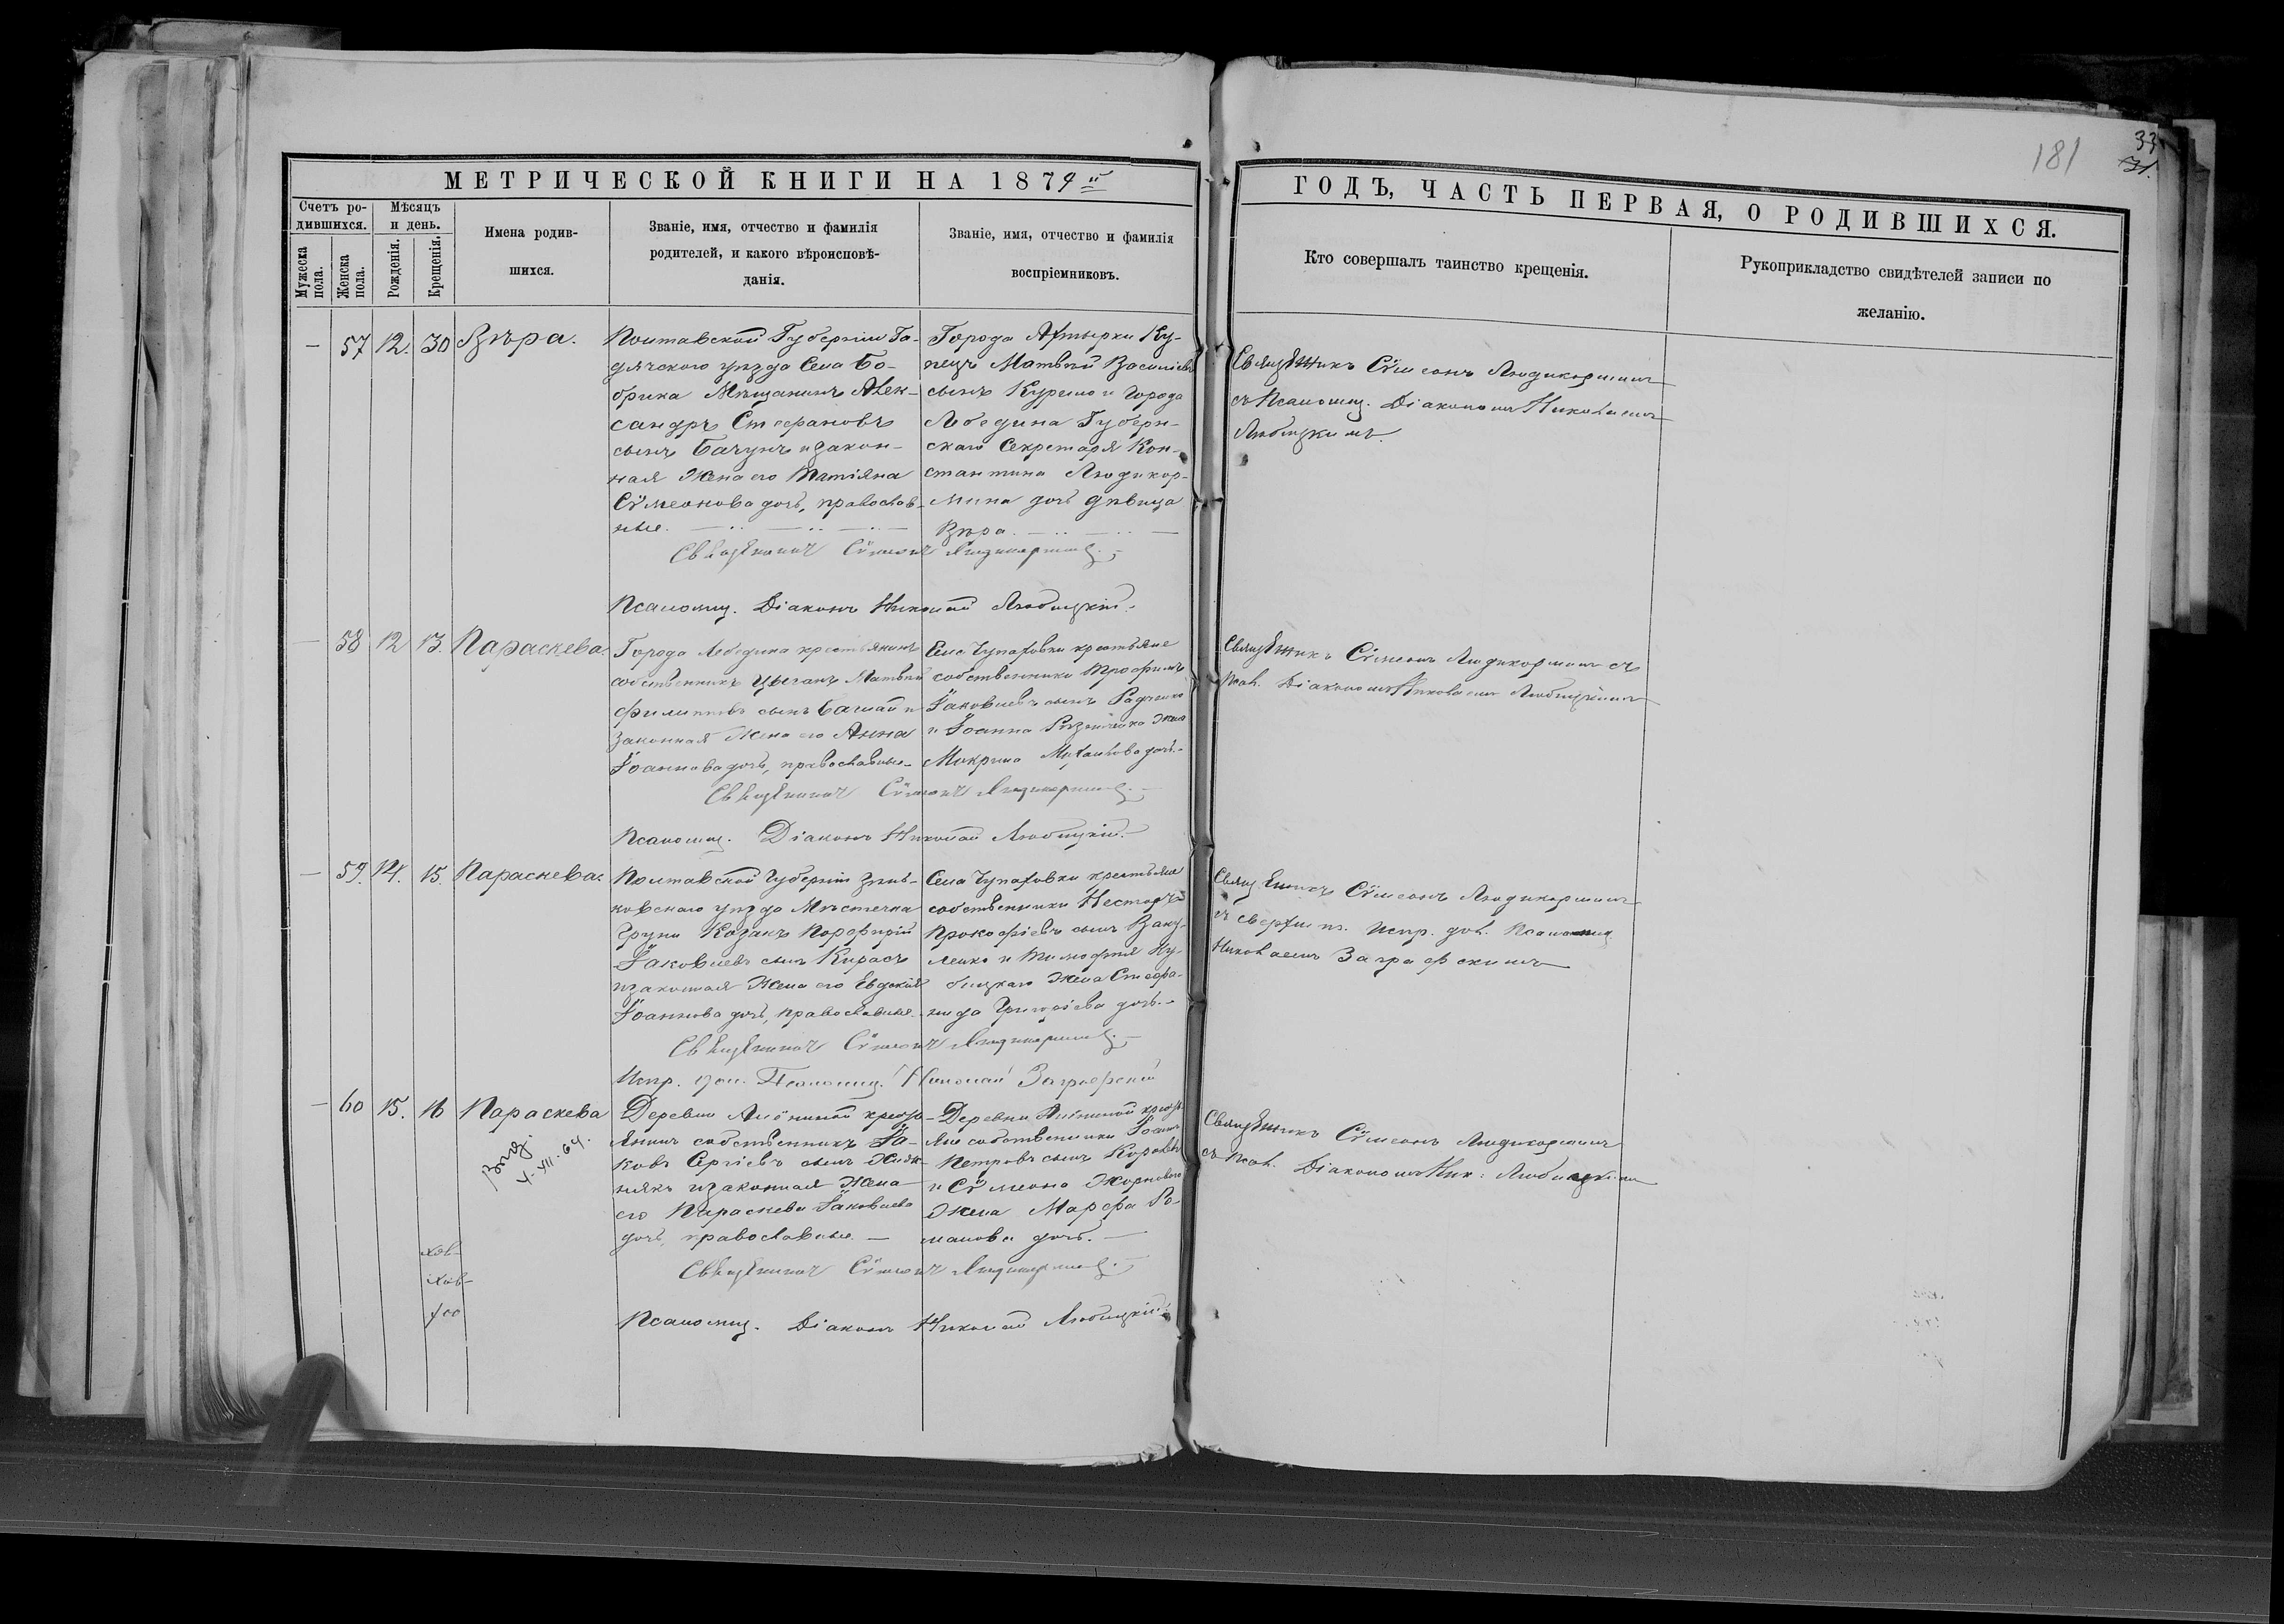 181
33
31.
МЕТРИЧЕСКОЙ КНИГИ НА 1879 й
ГОДЪ, ЧАСТЬ ПЕРВАЯ, О РОДИВШИХСЯ.
Счетъ ро-
дившихся.
Мужеска
пола.
Женска
пола.
Мѣсяцъ
и день.
Рожденія.
Крещенія.
Имена родив-
шихся.
Званіе, имя, отчество и фамилія
родителей, и какого вѣроисповѣ-
данія.
Званіе, имя, отчество и фамилія
воспріемниковъ.
Кто совершалъ таинство крещенія.
Рукоприкладство свидѣтелей записи по
желанію.
— 57 12. 30 Вѣра.
Полтавской Губерніи Га-
дячского уѣзда Села Бо-
брика Мѣщанинъ Алек-
сандръ Стефановъ
сынъ Бачунъ и закон-
ная Жена его Татіяна
Сѵмеонова дочь, православ-
ные.
Города Ахтырки Ку-
пецъ Матвѣй Василіевъ
сынъ Курило и Города
Лебедина Губерн-
скаго Секретаря Кон-
стантина Людикор-
мина дочь дѣвица
Вѣра.
Священникъ Сѵмеонъ Людикорминъ
съ Псаломщ. Діакономъ Николаемъ
Любицкимъ.
Священникъ Сѵмеонъ Людикорминъ
Псаломщ. Діаконъ Николай Любицкій.
— 58 12 13. Параскева.
Города Лебедина крестьянинъ
собственникъ Матвѣй
Филипповъ сынъ и
законная Жена его Анна
Іоаннова дочь, православные
Села Чупаховки крестьяне
собственники Трофимъ
Іаковлевъ сынъ Радченко
и Іоанна Жена
Макрина Михаилова дочь.
Священникъ Сѵмеонъ Людикорминъ съ
Псал. Діакономъ Николаемъ Любицкимъ
Священникъ Сѵмеонъ Людикорминъ
Псаломщ. Діаконъ Николай Любицкій.
— 59. 14. 15. Параскева.
Полтавской Губерніи Зинь-
ковскаго уѣзда Мѣстечка
Груни Козакъ Порфирій
Іаковлевъ сынъ Кирасъ
и законная Жена его Евдокія
Іоаннова дочь, православные.
Села Чупаховки крестьяне
собственники Несторъ
Прокофіевъ сынъ Ваку-
ленко и Тимофея Ку-
бицкаго Жена Стефа-
нида Григоріева дочь.
Священникъ Сѵмеонъ Людикорминъ
съ сверхшт. Испр. дол. Псаломщ.
Николаемъ Заграфскимъ
Священникъ Сѵмеонъ Людикорминъ
Испр. дол. Псаломщ. Николай Заграфскій
— 60 15. 16 Параскева
Деревни кресть-
янинъ собственникъ Іа-
ковъ Сергіевъ сынъ
и законная Жена
его Параскева Іаковлева
дочь, православные. —
Деревни кресть-
яне собственники Іоаннъ
Петровъ сынъ
и Сѵмеона Жорнового
Жена Марфа Ро-
манова дочь. —
Священникъ Сѵмеонъ Людикорминъ
съ Псал. Діакономъ Ник: Любицкимъ
Священникъ Сѵмеонъ Людикорминъ
Псаломщ. Діаконъ Николай Любицкій